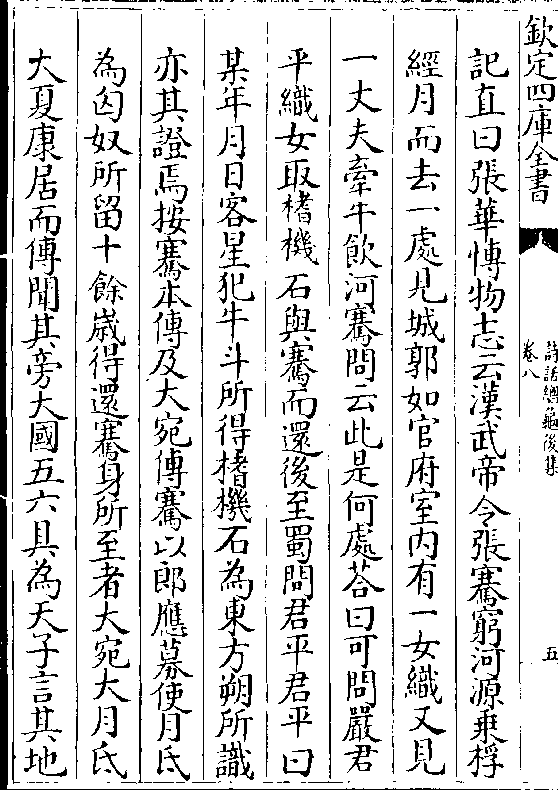 欽定四庫全書
詩話總龜後集
卷八
五
記直曰張華博物志云漢武帝令張騫窮河源乗桴
經月而去一處見城郭如官府室内有一女織又見
一丈夫牽牛飲河騫問云此是何處荅曰可問嚴君
平織女取榰機石與騫而還後至蜀問君平君平曰
某年月日客星犯牛斗所得榰機石為東方朔所識
亦其證焉按騫本傳及大宛傳騫以郎應募使月氏
為匈奴所留十餘嵗得還騫身所至者大宛大月氏
大夏康居而傳聞其旁大國五六具為天子言其地